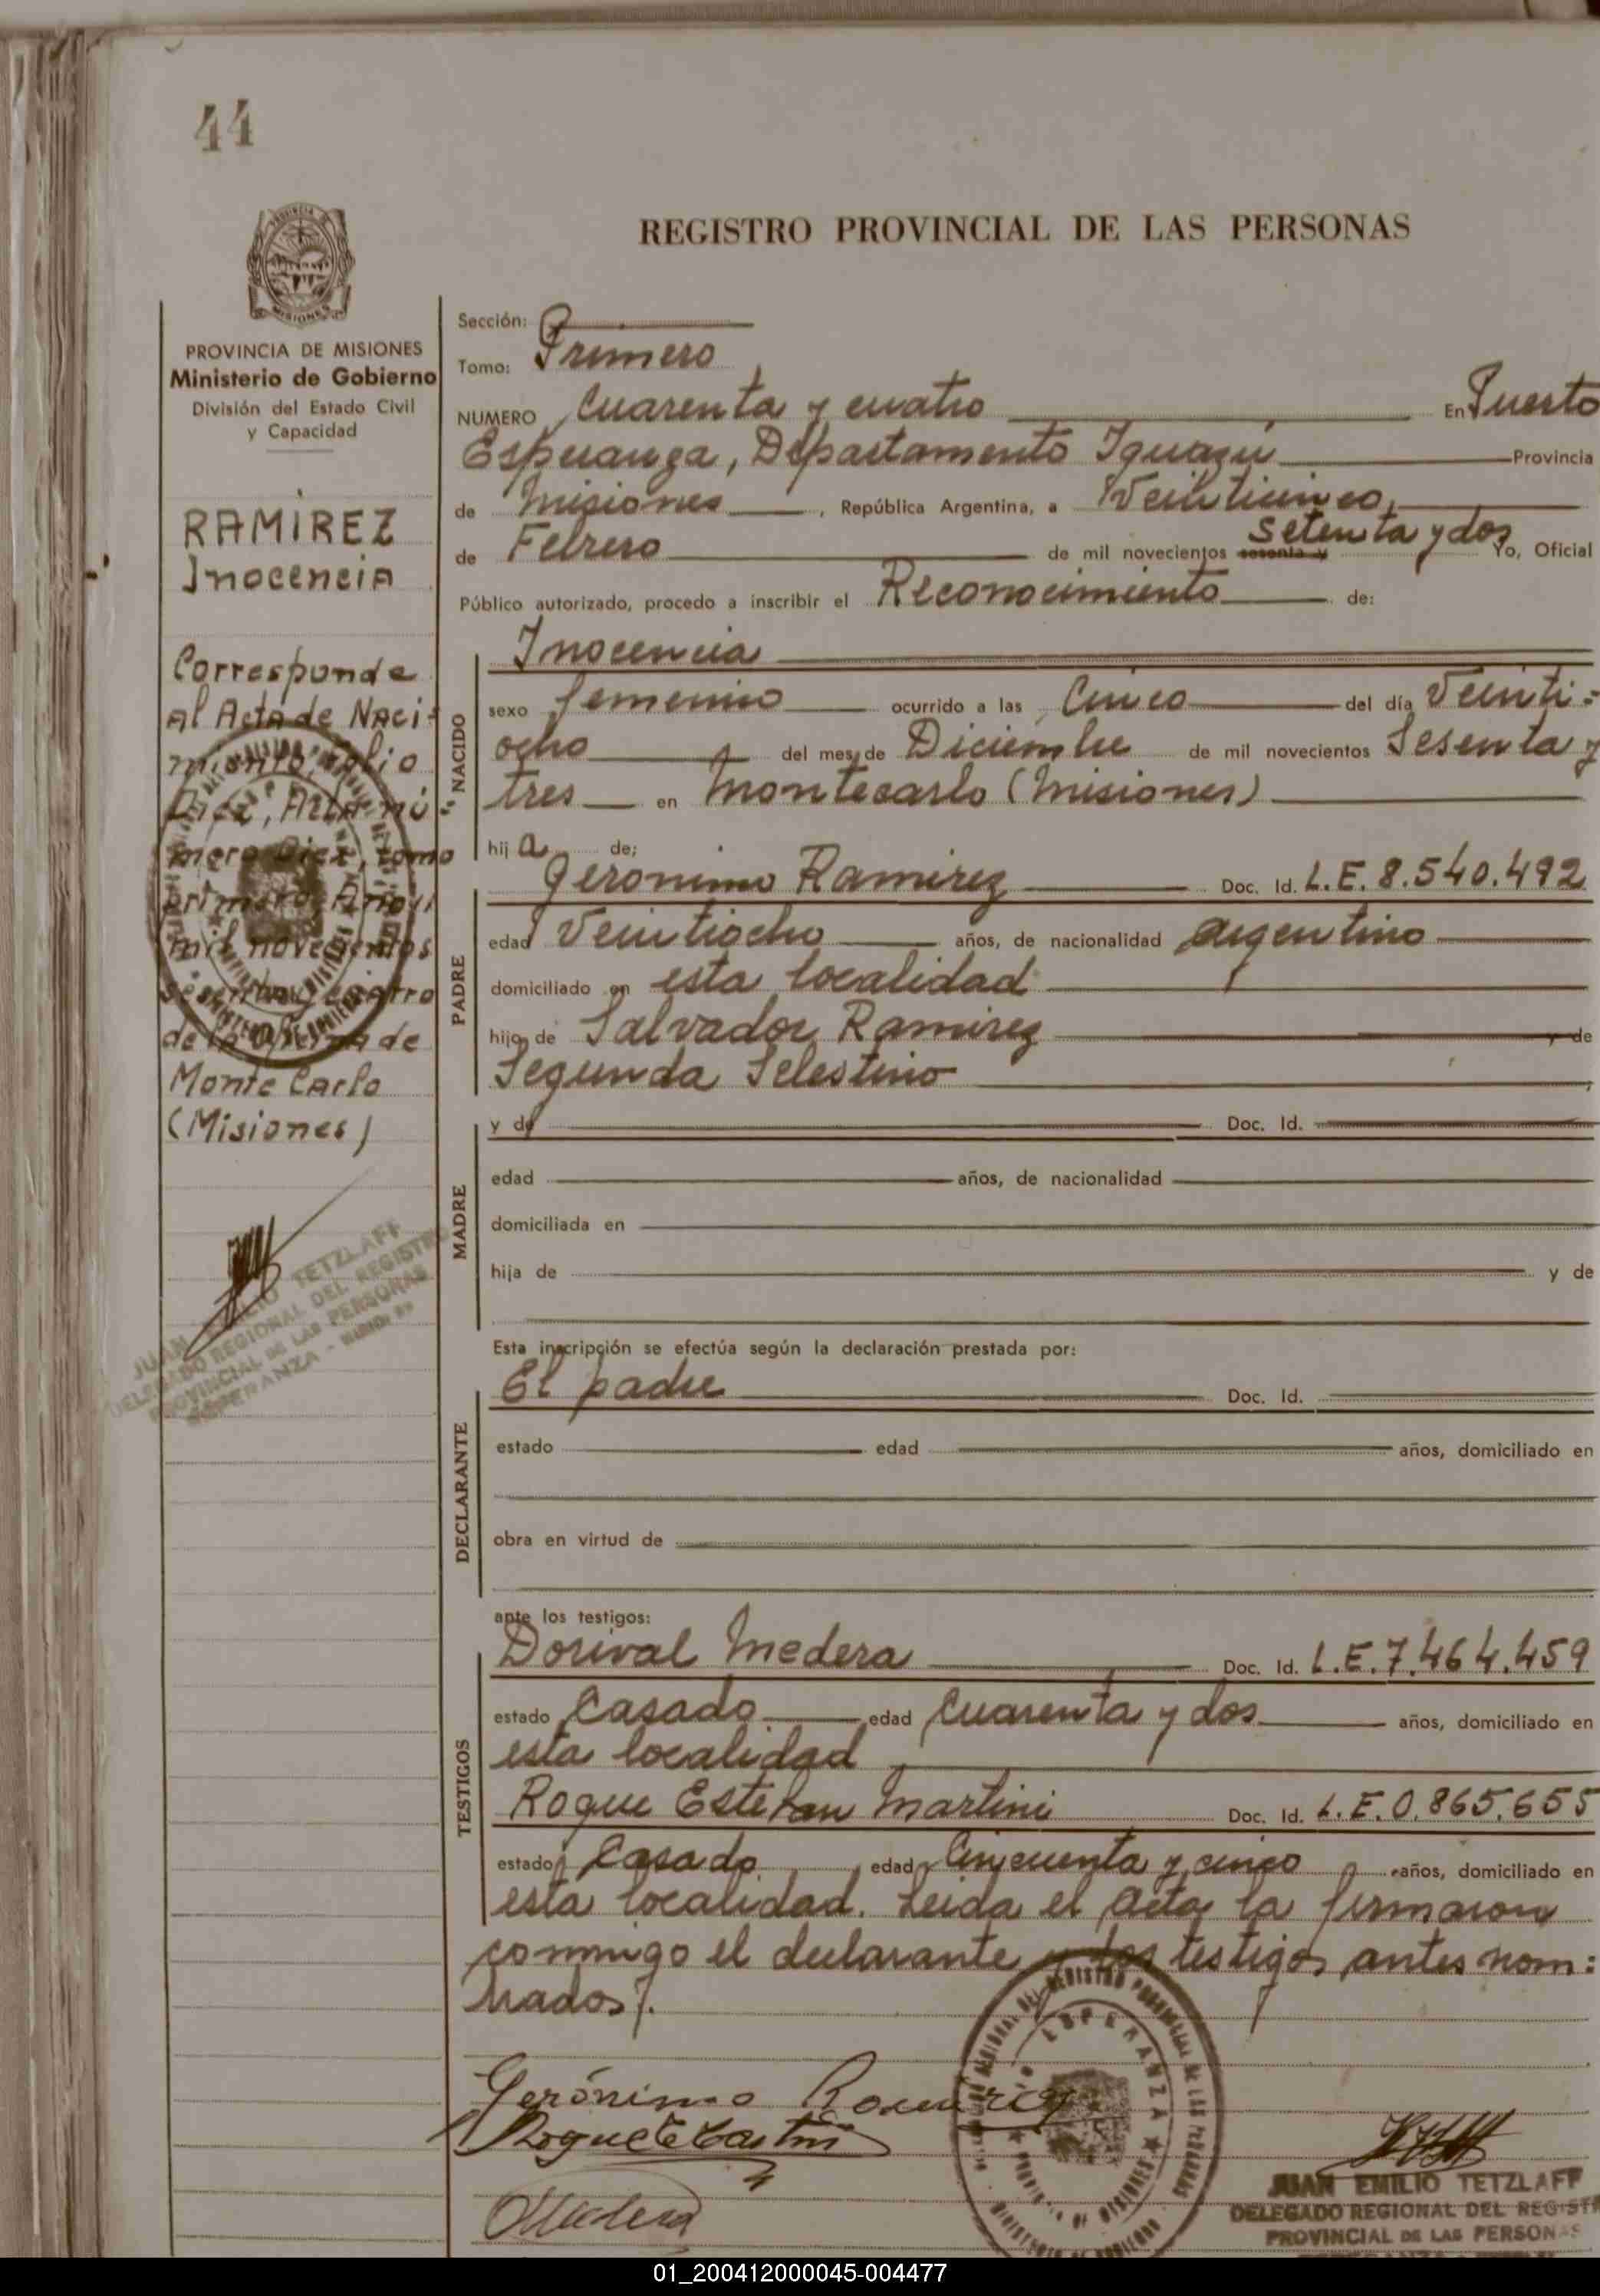 44
REGISTRO PROVINCIAL DE LAS PERSONAS
PROVINCIA DE MISIONES
Ministerio de Gobierno
División del Estado Civil
y Capacidad
RAMIREZ
Inocencia
Corresponde
al Acta de Naci-
miento, folio
Diez, Acta nú
mero Diez, tomo
primero Año
mil novecientos
sesenta y cuatro
de la Oficina de
Monte Carlo
(Misiones)
JUAN EMILIO TETZLAFF
DELEGADO REGIONAL DEL REGISTRO
PROVINCIAL DE LAS PERSONAS
ESPERANZA - MISIONES
Sección:
Tomo: Primero
NUMERO Cuarenta y cuatro En Puerto
Esperanza, Departamento Iguazú Provincia
de Misiones, República Argentina, a Veinticinco
de Febrero de mil novecientos sesenta y Setenta y dos Yo, Oficial
Público autorizado, procedo a inscribir el Reconocimiento de:
NACIDO
Inocencia
sexo femenino ocurrido a las Cinco del día Veinti-
ocho del mes de Diciembre de mil novecientos Sesenta y
tres en Montecarlo (Misiones)
hija de;
PADRE
Geronimo Ramirez Doc. Id. L.E. 8.540.492
edad Veintiocho años, de nacionalidad argentino
domiciliado en esta localidad
hijo de Salvador Ramirez y de
Segunda Selestino
MADRE
y de Doc. Id.
edad años, de nacionalidad
domiciliada en
hija de y de
Esta inscripción se efectúa según la declaración prestada por:
DECLARANTE
El padre Doc. Id.
estado edad años, domiciliado en
obra en virtud de
ante los testigos:
TESTIGOS
Dorival Medera Doc. Id. L.E. 7.464.459
estado Casado edad Cuarenta y dos años, domiciliado en
esta localidad
Roque Esteban Martini Doc. Id. L.E. 0.865.655
estado Casado edad Cincuenta y cinco años, domiciliado en
esta localidad. Leida el acta la firmaron
conmigo el declarante y los testigos antes nom-
brados.
Gerónimo Ramirez
JUAN EMILIO TETZLAFF
DELEGADO REGIONAL DEL REGIST
PROVINCIAL DE LAS PERSONAS
01_200412000045-004477